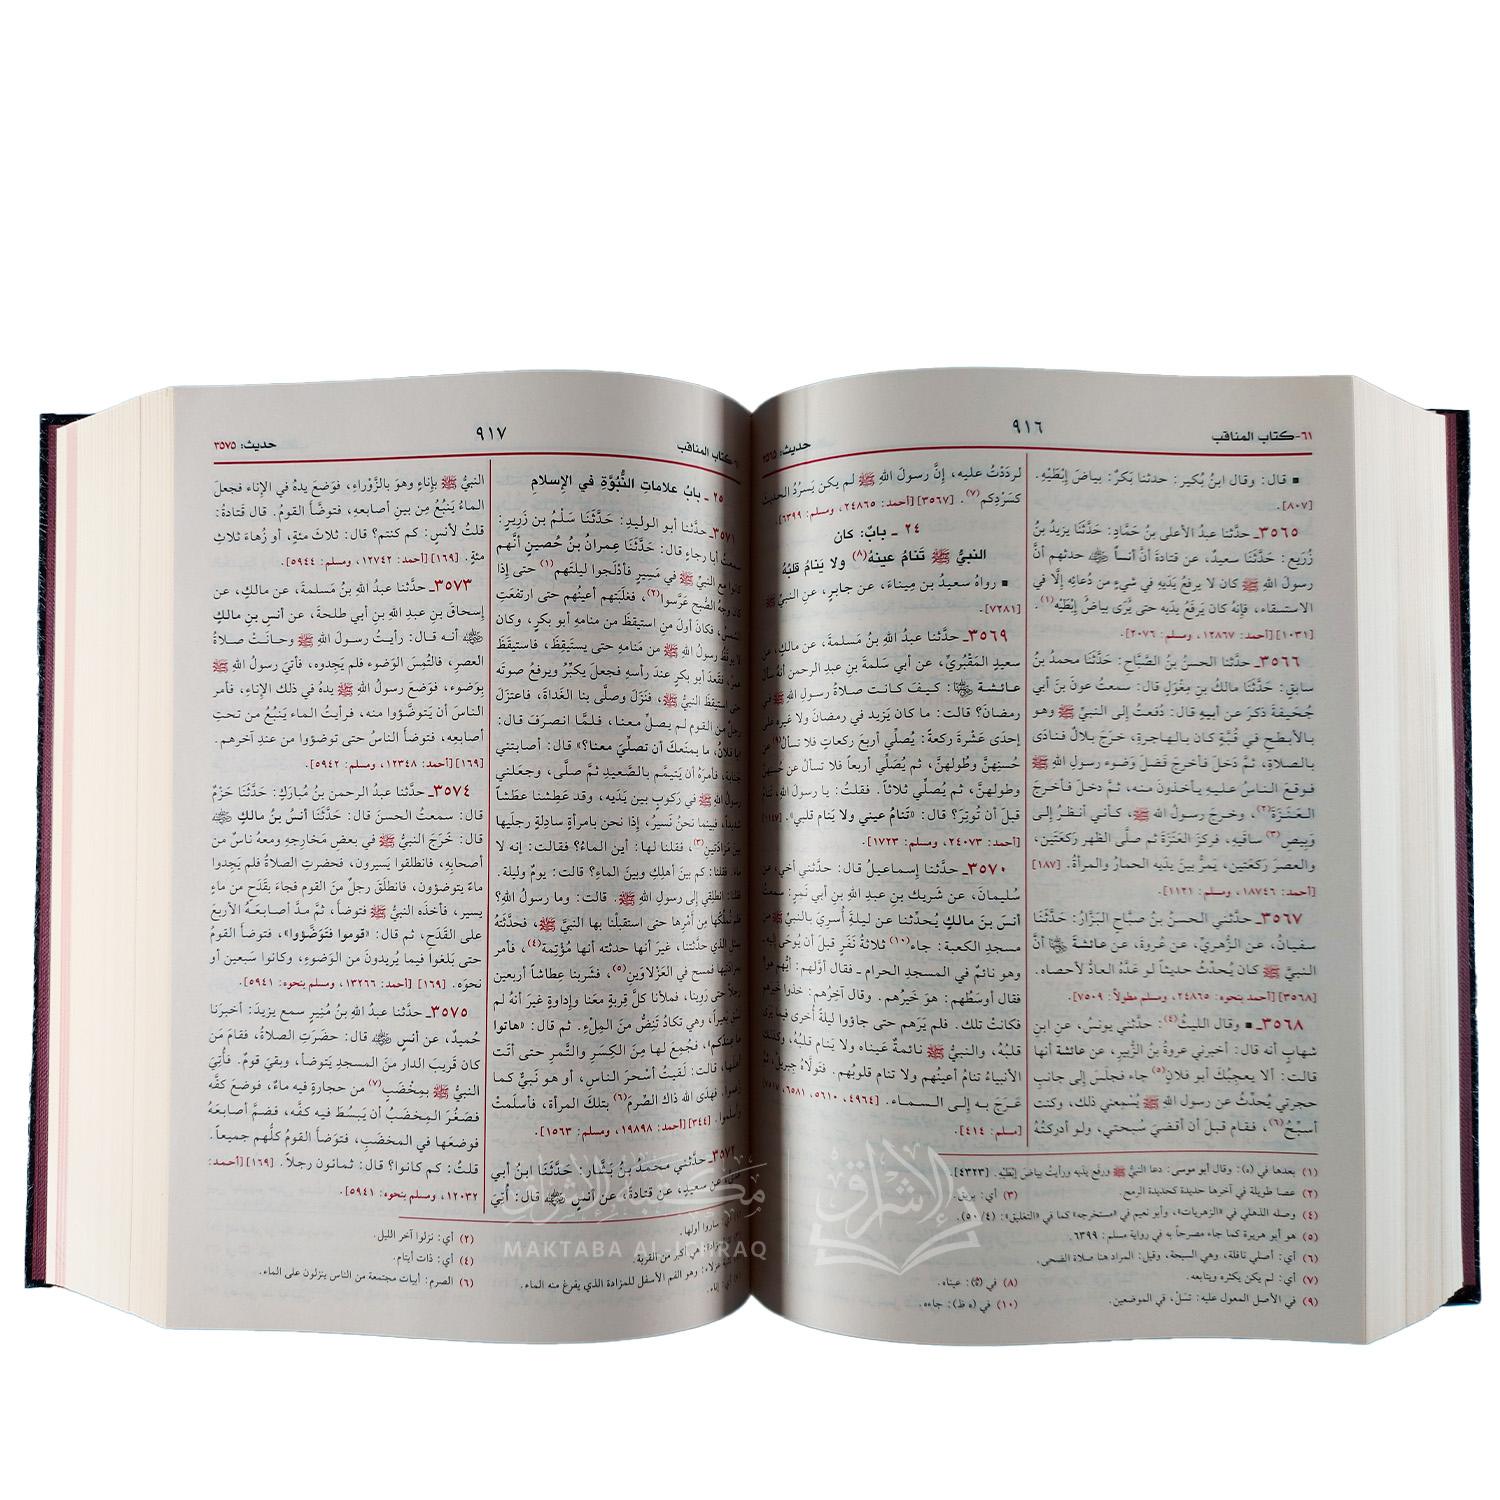 ٦١-كتاب المناقب
٩١٦
حديث: ٣٥٦٥
▪ قال: وقال ابنُ بُكير: حدثنا بَكرٌ: بياضَ إبْطَيْهِ.
[٨٠٧].
٣٥٦٥ـ حدَّثنا عبدُ الأعلى بنُ حَمَّادٍ: حَدَّثَنَا يَزيدُ بنُ
زُرَيع: حَدَّثَنَا سعيدٌ، عن قتادةَ أنَّ أنساً ﵁ حدثهم أنَّ
رسولَ اللهِ ﷺ كان لا يرفعُ يَدَيهِ في شيءٍ من دُعائِهِ إلَّا في
الاستسقاء، فإنهُ كان يَرفَعُ يدَيه حتى يُرَى بياضُ إبْطَيْهِ(١).
[١٠٣١] [أحمد: ١٢٨٦٧، ومسلم: ٢٠٧٦].
٣٥٦٦ـ حدَّثنا الحسنُ بنُ الصَّبَّاح: حَدَّثَنَا محمدُ بنُ
سابق: حَدَّثَنَا مالكُ بن مِغْوَلٍ قال: سمعتُ عونَ بنَ أبي
جُحَيفةَ ذكرَ عن أبيهِ قال: دُفعتُ إلى النبيِّ ﷺ وهو
بالأبطَح في قُبَّةٍ كان بالهاجِرةِ، خَرَجَ بلالٌ فنادَى
بالصلاةِ، ثمَّ دَخلَ فأخرجَ فضلَ وَضوء رسولِ اللهِ ﷺ
فوقعَ الناسُ عليهِ يأخذون منه، ثمَّ دخلَ فأخرجَ
العَنَزَةَ(٢)، وخرجَ رسولُ الله ﷺ، كأني أنظرُ إلى
وَبِيصِ(٣) ساقَيهِ، فركزَ العَنَزةَ ثم صلَّى الظهر ركعَتَينِ،
والعصرَ ركعَتَين، يَمرُّ بينَ يدَيه الحمارُ والمرأةُ. [١٨٧]
[أحمد: ١٨٧٤٦، ومسلم: ١١٢١].
٣٥٦٧ـ حدَّثني الحسنُ بنُ صباحٍ البَزَّارُ: حَدَّثَنَا
سفيانُ، عن الزُّهريِّ، عن عُروةَ، عن عائشةَ ﵂ أنَّ
النبيَّ ﷺ كان يُحدِّثُ حديثاً لو عَدَّهُ العادُّ لأحصاه.
[٣٥٦٨] [أحمد بنحوه: ٢٤٨٦٥، ومسلم مطولاً: ٧٥٠٩].
٣٥٦٨ـ ▪ وقال الليثُ(٤): حدَّثني يونسُ، عن ابنِ
شهابٍ أنه قال: أخبرني عروةُ بنُ الزُّبيرِ، عن عائشةَ أنها
قالت: ألا يعجبُكَ أبو فلانٍ(٥) جاء فجلَسَ إلى جانبِ
حجرتي يُحدِّثُ عن رسولِ اللهِ ﷺ يُسْمِعُني ذلك، وكنت
أُسبِّحُ(٦)، فقام قبلَ أن أقضيَ سُبحتي، ولو أدركتُهُ
لردَدْتُ عليه، إنَّ رسولَ اللهِ ﷺ لم يكن يَسرُدُ الحديث
كسَرْدِكم(٧). [٣٥٦٧] [أحمد: ٢٤٨٦٥، ومسلم: ٦٣٩٩].
٢٤ ـ بابٌ: كان
النبيُّ ﷺ تَنامُ عينهُ(٨) ولا يَنامُ قلبُهُ
▪ رواهُ سعيدُ بن مِيناءَ، عن جابرٍ، عن النبيِّ ﷺ
[٧٢٨١].
٣٥٦٩ـ حدَّثنا عبدُ اللهِ بنُ مَسلمةَ، عن مالكٍ، عن
سعيدٍ المَقْبُريِّ، عن أبي سَلَمةَ بنِ عبدِ الرحمن أنهُ سألَ
عائشةَ ﵂: كيفَ كانت صلاةُ رسولِ اللهِ ﷺ في
رمضانَ؟ قالت: ما كان يَزيد في رمضانَ ولا غيرِهِ على
إحدَى عَشْرَةَ ركعةً: يُصلِّي أربعَ ركعاتٍ فلا تسألْ(٩) عن
حُسنِهنَّ وطُولهنَّ، ثم يُصلِّي أربعاً فلا تسألْ عن حُسنِهنَّ
وطولهنَّ، ثم يُصلِّي ثلاثاً. فقلتُ: يا رسولَ اللهِ، تَنامُ
قبلَ أن تُوترَ؟ قال: «تَنامُ عيني ولا يَنامُ قلبي». [١١٤٧]
[أحمد: ٢٤٠٧٣، ومسلم: ١٧٢٣].
٣٥٧٠ـ حدَّثنا إسماعيلُ قال: حدَّثني أخي، عن
سُليمانَ، عن شَريكِ بنِ عبدِ اللهِ بنِ أبي نَمِرٍ: سمعتُ
أنسَ بنَ مالكٍ يُحدِّثنا عن ليلةَ أُسرِيَ بالنبيِّ ﷺ من
مسجدِ الكعبة: جاء(١٠) ثلاثةُ نَفَرٍ قبلَ أن يُوحَى إليه
وهو نائمٌ في المسجدِ الحرام ـ فقال أوَّلهم: أيُّهم هو؟
فقال أوسَطُهم: هوَ خيرُهم. وقال آخِرُهم: خذوا خيرَهم
فكانتْ تلك. فلم يَرَهم حتى جاؤوا ليلةً أُخرى فيما يَرَى
قلبُهُ، والنبيُّ ﷺ نائمةٌ عَيناه ولا يَنام قلبُهُ، وكذلك
الأنبياءُ تنامُ أعينُهم ولا تنام قلوبُهم. فتَولَّاهُ جِبريلُ، ثمَّ
عَرَجَ به إلى السماء. [٤٩٦٤، ٥٦١٠، ٦٥٨١، ٧٥١٧]
[مسلم: ٤١٤].
(١) بعدها في (ه): وقال أبو موسى: دعا النبيُّ ﷺ ورفع يديه ورأيت بياضَ إبْطَيْهِ. [٤٣٢٣].
(٢) عصا طويلة في آخرها حديدة كحديدة الرمح.
(٣) أي: بريق.
(٤) وصله الذهلي في «الزهريات»، وأبو نعيم في «مستخرجه» كما في «التغليق»: (٤/٥٠).
(٥) هو أبو هريرة كما جاء مصرحاً به في رواية مسلم: ٦٣٩٩.
(٦) أي: أصلي نافلة، وهي السبحة، وقيل: المراد هنا صلاة الضحى.
(٧) أي: لم يكن يكثره ويتابعه.
(٨) في : عيناه.
(٩) في الأصل المعول عليه: تسَلْ، في الموضعين.
(١٠) في (ه ظ): جاءه.
كتاب المناقب
٩١٧
حديث: ٣٥٧٥
٢٥ ـ بابُ علاماتِ النُّبُوَّةِ في الإسلامِ
٣٥٧١ـ حدَّثنا أبو الوليدِ: حَدَّثَنَا سَلْمُ بن زَرِيرٍ:
سمعتُ أبا رجاءٍ قال: حَدَّثَنَا عِمرانُ بنُ حُصينٍ أنَّهم
كانوا مع النبيِّ ﷺ في مَسِيرٍ فأدْلَجوا ليلتَهم(١) حتى إذا
كان وجهُ الصُّبح عَرَّسوا(٢)، فغلَبَتهم أعينُهم حتى ارتفعَتِ
الشمسُ، فكان أولَ منِ استيقظَ من منامِهِ أبو بكرٍ، وكان
لا يوقَظُ رسولُ اللهِ ﷺ من مَنامهِ حتى يَستَيقِظَ، فاستيقظَ
عمرُ، فقَعدَ أبو بكرٍ عندَ رأسِهِ فجعلَ يكبِّرُ ويرفعُ صوته
حتى استيقظَ النبيُّ ﷺ، فنَزَلَ وصلَّى بنا الغَداةَ، فاعتزَلَ
رجلٌ من القوم لم يصلِّ معنا، فلمَّا انصرَفَ قال:
«يا فلانُ، ما يمنَعكَ أن تصلِّيَ معنا؟» قال: أصابتني
جنابةٌ، فأمرَهُ أن يَتيمَّمَ بالصَّعيدِ ثمَّ صلَّى، وجعلني
رسولُ اللهِ ﷺ في رَكوبٍ بين يَدَيه، وقد عَطِشْنا عطَشاً
شديداً، فبينما نحنُ نَسيرُ، إذا نحن بامرأةٍ سادِلةٍ رجلَيها
بين مَزادتَينِ(٣)، فقلنا لها: أين الماءُ؟ فقالت: إنه لا
ماء. فقلنا: كم بينَ أهلِكِ وبينَ الماءِ؟ قالت: يومٌ وليلة.
فقلنا: انطلقي إلى رسولِ اللهِ ﷺ. قالت: وما رسولُ اللهِ؟
فلم نُملِّكْها مِن أمْرِها حتى استقبلْنا بها النبيَّ ﷺ، فحدَّثَتهُ
بمثلِ الذي حدَّثتنا، غيرَ أنها حدثته أنها مُؤْتِمةٌ(٤)، فأمر
بمَزادَتَيها فمسح في العَزْلاوَينِ(٥)، فشَرِبنا عِطاشاً أربعينَ
رجلاً حتى رَوِينا، فملأنا كلَّ قِربةٍ معَنا وإداوةٍ غيرَ أنهُ لم
نَسْقِ بعيراً، وهي تكادُ تَنِضُّ منَ المِلْءِ. ثم قال: «هاتوا
ما عندَكم»، فجُمِعَ لها مِنَ الكِسَرِ والتَّمرِ حتى أتَت
أهلَها، قالت: لَقيتُ أسْحَرَ الناسِ، أو هو نَبيٌّ كما
زعموا. فهدَى اللهُ ذاك الصِّرمَ(٦) بتلكَ المرأةِ، فأسلَمَتْ
وأسلَموا. [٣٤٤] [أحمد: ١٩٨٩٨، ومسلم: ١٥٦٣].
٣٥٧٢ـ حدَّثني محمدُ بنُ بَشَّارٍ: حَدَّثَنَا ابنُ أبي
عن سعيدٍ، عن قَتادةَ، عن أنسٍ ﵁ قال: أُتِيَ
النبيُّ ﷺ بإناءٍ وهوَ بالزَّوْراءِ، فوَضعَ يدَهُ في الإناء فجعلَ
الماءُ يَنبُعُ مِن بينِ أصابعِهِ، فتوضَّأَ القومُ. قال قَتادةُ:
قلتُ لأنَسٍ: كم كنتم؟ قال: ثلاثَ مئةٍ، أو زُهاءَ ثلاثِ
مئةٍ. [١٦٩] [أحمد: ١٢٧٤٢، ومسلم: ٥٩٤٤].
٣٥٧٣ـ حدَّثنا عبدُ اللهِ بنُ مَسلَمةَ، عن مالكٍ، عن
إسحاقَ بنِ عبدِ اللهِ بنِ أبي طلحةَ، عن أنسِ بنِ مالكٍ
﵁ أنه قال: رأيتُ رسولَ اللهِ ﷺ وحانَتْ صلاةُ
العصرِ، فالتُمِسَ الوَضوء فلم يَجِدوه، فأُتيَ رسولُ اللهِ ﷺ
بِوَضوء، فوَضَعَ رسولُ الله ﷺ يدهُ في ذلك الإناءِ، فأمر
الناسَ أن يَتوضَّؤوا منه، فرأيتُ الماء يَنبُعُ من تحتِ
أصابعِه، فتوضأ الناسُ حتى توضؤوا من عندِ آخرِهم.
[١٦٩] [أحمد: ١٢٣٤٨، ومسلم: ٥٩٤٢].
٣٥٧٤ـ حدَّثنا عبدُ الرحمنِ بنُ مُبارَكٍ: حَدَّثَنَا حَزْمٌ
قال: سمعتُ الحسَنَ قال: حدَّثَنَا أنَسُ بنُ مالكٍ ﵁
قال: خَرَجَ النبيُّ ﷺ في بعضِ مَخارِجِهِ ومعه ناسٌ من
أصحابِهِ، فانطلَقوا يَسيرون، فحضرَتِ الصلاةُ فلم يَجِدوا
ماءً يَتوضؤون، فانطلَقَ رجلٌ منَ القوم فجاءَ بقَدَحٍ من ماءٍ
يسيرٍ، فأخذَه النبيُّ ﷺ فتوضأ، ثمَّ مدَّ أصابعَهُ الأربعَ
على القَدَح، ثم قال: «قوموا فتَوضَّؤوا»، فتوضأ القومُ
حتى بَلَغوا فيما يُريدونَ منَ الوَضوء، وكانوا سَبعينَ أو
نحوَه. [١٦٩] [أحمد: ١٣٢٦٦، ومسلم بنحوه: ٥٩٤١].
٣٥٧٥ـ حدَّثنا عبدُ اللهِ بنُ مُنِيرٍ سمع يزيدَ: أخبرَنا
حُميدٌ، عن أنسٍ ﵁ قال: حضَرَتِ الصلاةُ، فقامَ مَن
كان قَريبَ الدارِ منَ المسجدِ يَتوضأ، وبقيَ قومٌ. فأُتيَ
النبيُّ ﷺ بِمِخْضَبٍ(٧) من حجارةٍ فيه ماءٌ، فوضعَ كفَّه
فصَغُرَ المِخضَبُ أن يَبْسُطَ فيه كفَّه، فضمَّ أصابعَهُ
فوضعَها في المخضَبِ، فتوضَّأَ القومُ كلُّهم جميعاً.
قلتُ: كم كانوا؟ قال: ثمانون رجلاً. [١٦٩] [أحمد:
١٢٠٣٢، ومسلم بنحوه: ٥٩٤١].
أي: ساروا أولها.
(٢) أي: نزلوا آخر الليل.
هي أكبر من القربة.
(٤) أي: ذات أيتام.
عزلاء: وهو الفم الأسفل للمزادة الذي يفرغ منه الماء.
(٦) الصرم: أبيات مجتمعة من الناس ينزلون على الماء.
أي: إناء.
مكتبة الإشراق
MAKTABA AL-ICHRAQ
الإشراق